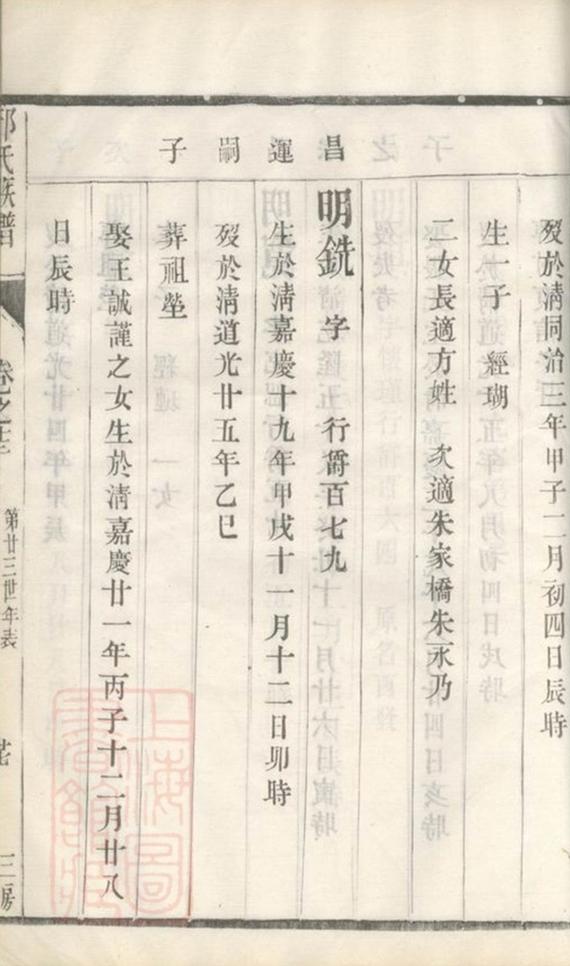 歿於清同治三年甲子二月初四日辰時
生一子　經瑚
二女長適方姓　次適朱家橋朱永乃
昌運嗣子
明銑　字　行爵百七九
生於清嘉慶十九年甲戌十一月十二日卯時
歿於清道光廿五年乙巳
葬祖塋
娶王誠謹之女生於清嘉慶廿一年丙子十二月廿八
日辰時
氏族譜
第廿三世年表
三房
上海圖書館藏